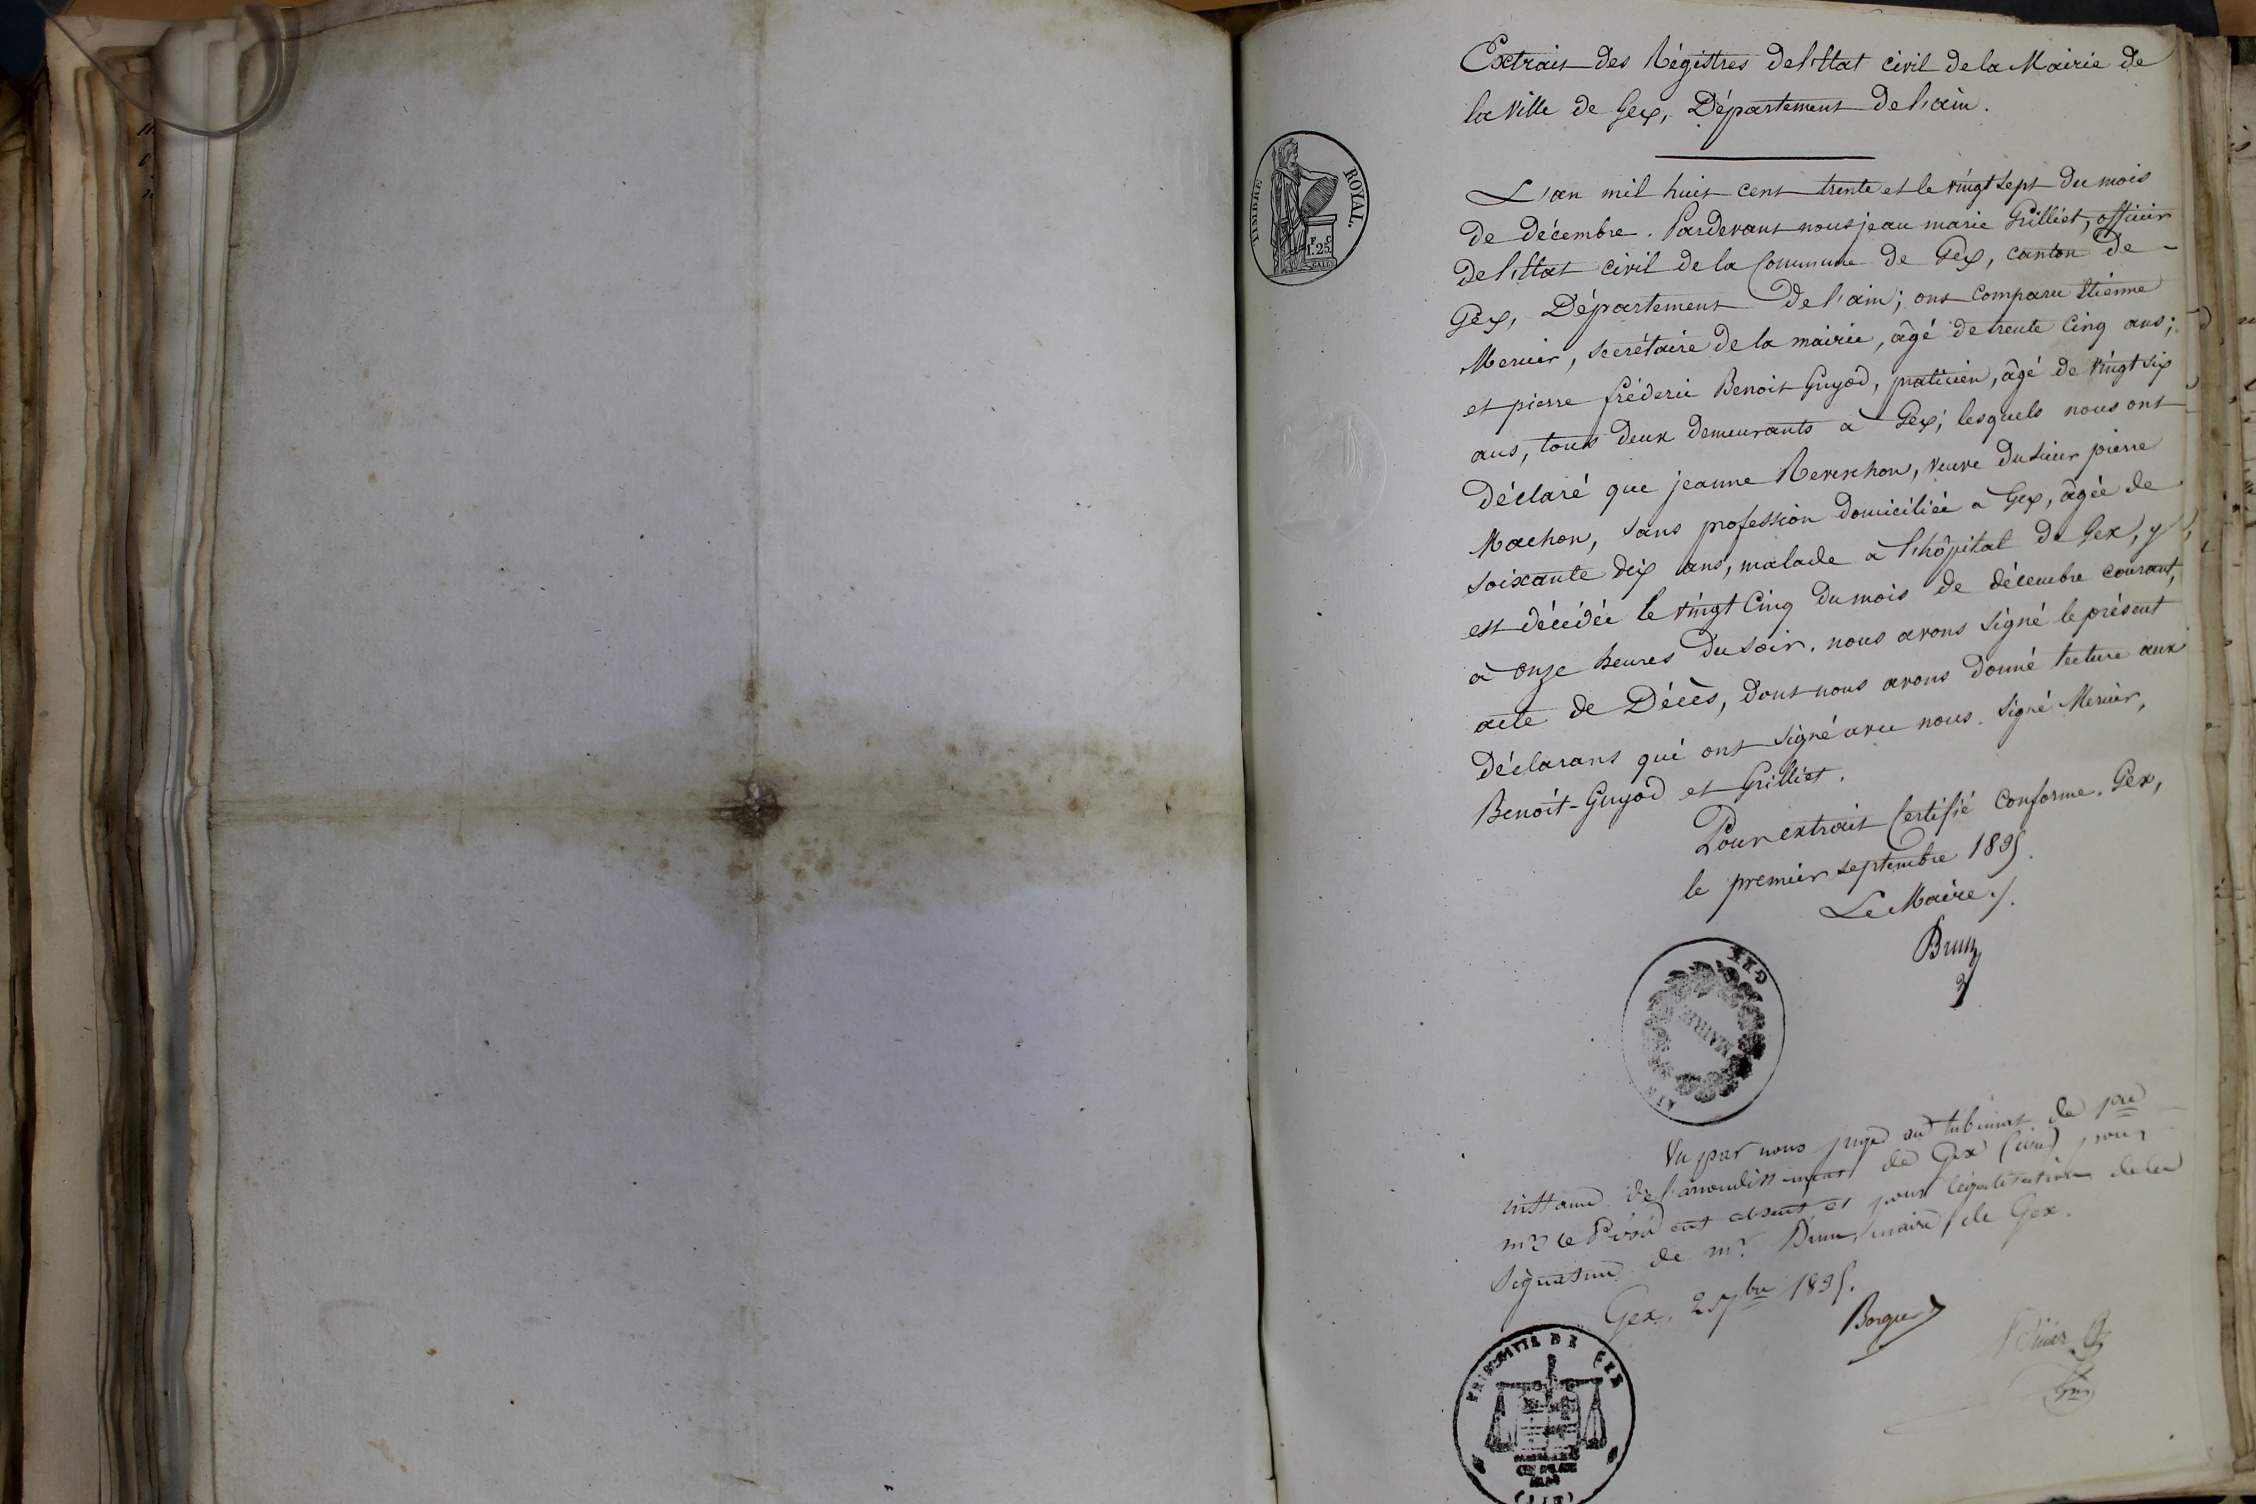 Extrait des Régistres de l'Etat civil de la Mairie de
la Ville de Gex, Département de l'ain.
TIMBRE ROYAL.
F C
1.25
L'an mil huit cent trente et le vingt sept du mois
de décembre. Pardevant nous jean marie Grilliet, officier
de l'Etat civil de la Commune de Gex, canton de -
Gex, Département de l'ain; ont comparu Etienne
Mercier, secrétaire de la mairie, âgé de trente cinq ans;
et pierre fréderic Benoit Guyod, praticien, âgé de vingt six
ans, tous deux demeurants à Gex; lesquels nous ont
déclaré que jeanne Reverchon, veuve du sieur pierre
Machon, sans profession domiciliée à Gex, âgée de
soixante dix ans, malade à l'hôpital de Gex, y
est décédée le vingt cinq du mois de décembre courant,
à onze heures du soir. nous avons signé le présent
acte de Décès, dont nous avons donné lecture aux
déclarans qui ont signé avec nous. signé Mercier,
Benoit-Guyod et Grilliet.
Pour extrait Certifié conforme. Gex,
le premier septembre 1835.
Le Maire /.
Brun
GEX
MAIRIE
AIN
Vu par nous juge au tribunal de pre
instance de l'arrondissement de Gex (ain) pour
mr le Président absent et pour légalisation de la
signature de mr. Brun, maire de Gex.
Gex, 2 7bre 1835.
DE GEX
(AIN)